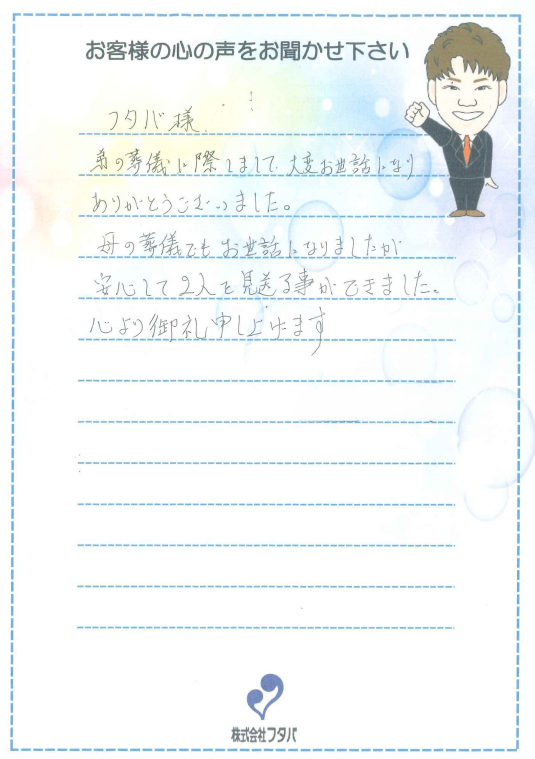 お客様の心の声をお聞かせ下さい
フタバ様
弟の葬儀に際しまして、大変お世話になり
ありがとうございました。
母の葬儀でもお世話になりましたが
安心して2人を見送る事ができました。
心より御礼申し上げます
株式会社フタバ